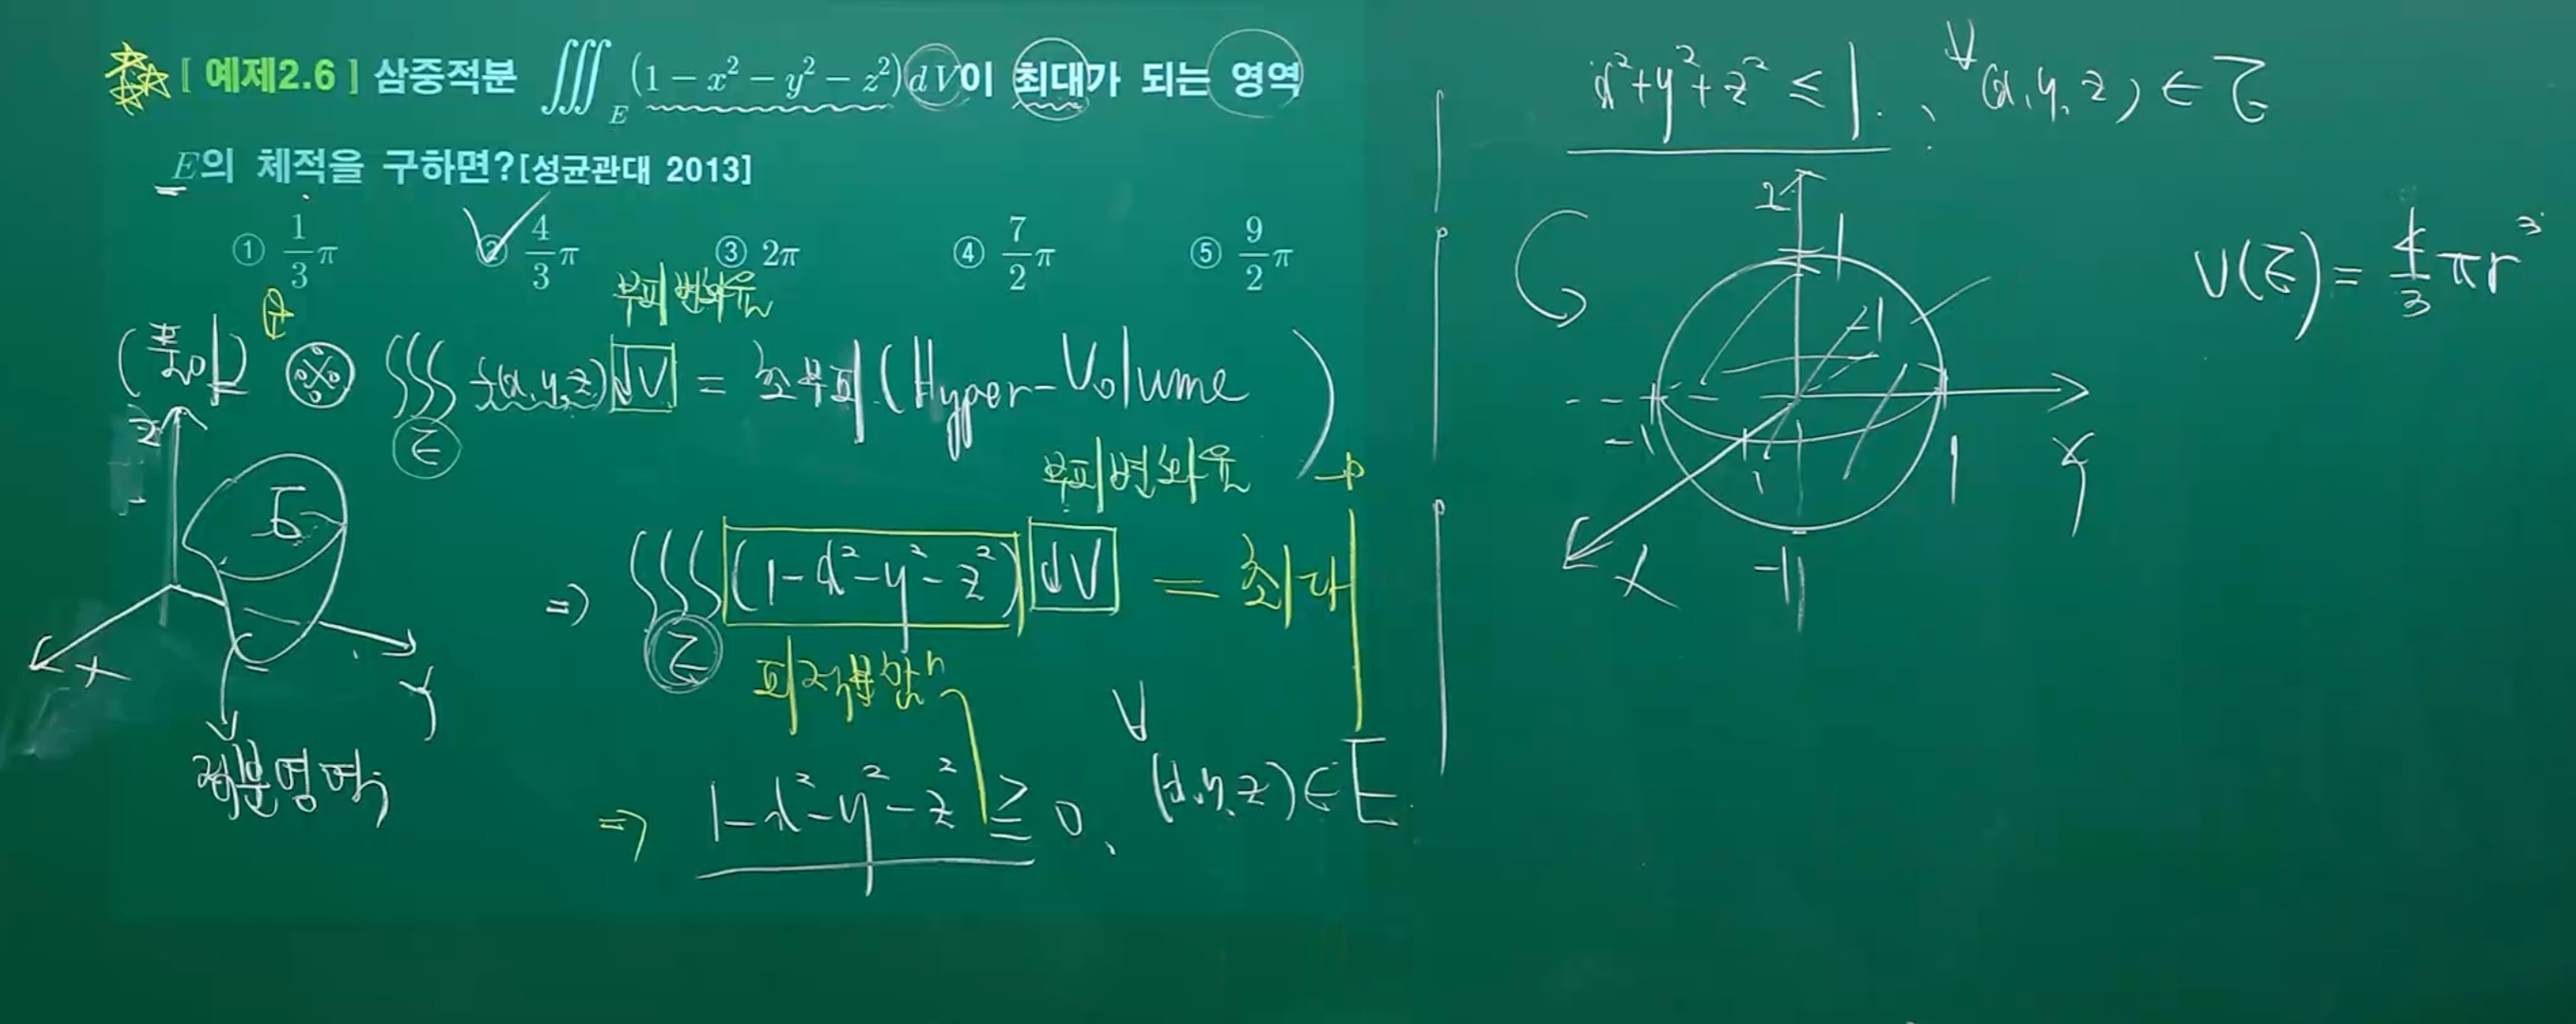 [ 예제2.6 ] 삼중적분 ∭_E (1 − x² − y² − z²)dV이 최대가 되는 영역
E의 체적을 구하면?[성균관대 2013]
① 1/3 π ② 4/3 π ③ 2π ④ 7/2 π ⑤ 9/2 π
부피변화율
(풀이) ∭_E f(x,y,z) dV = 초부피 (Hyper-Volume )
Z
E
X
Y
적분영역
부피변화율
⇒ ∭_E (1−x²−y²−z²) dV = 최대
피적분함수
⇒ 1−x²−y²−z² ≥ 0, ∀(x,y,z)∈E
x²+y²+z² ≤ 1, ∀(x,y,z)∈E
Z
1
-1
-1
1
1
Y
X
-1
V(E) = 4/3 πr³